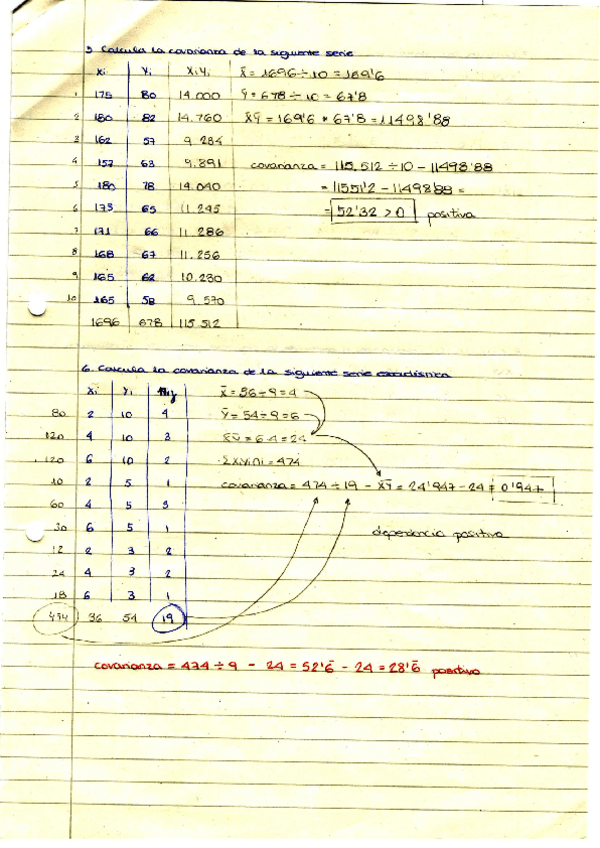 5. Calcula la covarianza de la siguiente serie
Xi Yi XiYi X̄ = 1696 ÷ 10 = 169'6
1 175 80 14.000 Ȳ = 678 ÷ 10 = 67'8
2 180 82 14.760 X̄Ȳ = 169'6 * 67'8 = 11498'88
3 162 57 9.234
4 157 63 9.891 covarianza = 115.512 ÷ 10 - 11498'88
5 180 78 14.040 = 11551'2 - 11498'88 =
6 173 65 11.245 = 52'32 > 0 positiva
7 171 66 11.286
8 168 67 11.256
9 165 62 10.230
10 165 58 9.570
1696 678 115.512
6. Calcula la covarianza de la siguiente serie estadística
Xi Yi X̄ = 36 ÷ 9 = 4
80 2 10 4 Ȳ = 54 ÷ 9 = 6
120 4 10 3 X̄Ȳ = 6·4 = 24
120 6 10 2 ΣXiYini = 474
10 2 5 1 covarianza = 474 ÷ 19 - X̄Ȳ = 24'947 - 24 = 0'947
60 4 5 3
30 6 5 1 dependencia positiva
12 2 3 2
24 4 3 2
18 6 3 1
474 36 54 19
covarianza = 474 ÷ 9 - 24 = 52'6̄ - 24 = 28'6̄ positivo